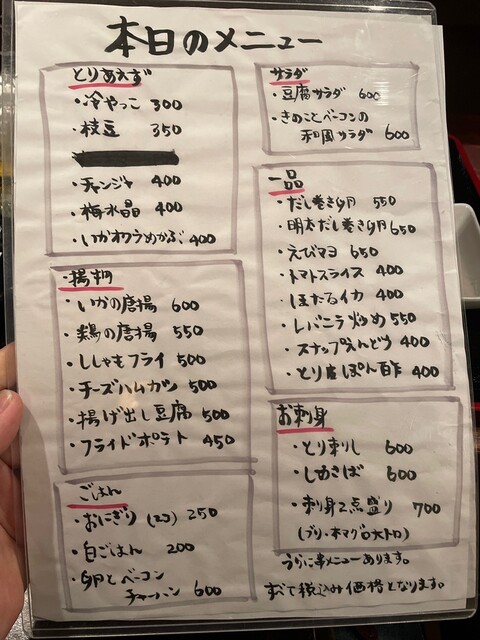 本日のメニュー
とりあえず
・冷やっこ 300
・枝豆 350
・チャンジャ 400
・梅水晶 400
・いかオクラめかぶ 400
サラダ
・豆腐サラダ 600
・きのことベーコンの
和風サラダ 600
一品
・だし巻き卵 550
・明太だし巻き卵 650
・えびマヨ 650
・トマトスライス 400
・ほたるイカ 400
・レバニラ炒め 550
・スナップえんどう 400
・とり皮ぽん酢 400
・揚物
・いかの唐揚 600
・鶏の唐揚 550
・ししゃもフライ 500
・チーズハムカツ 500
・揚げ出し豆腐 500
・フライドポテト 450
お刺身
・とり刺し 600
・しめさば 600
・刺身2点盛り 700
(ブリ・本マグロ大トロ)
ごはん
・おにぎり (2コ) 250
・白ごはん 200
・卵とベーコン
チャーハン 600
うらに串メニューあります。
すべて税込み価格となります。